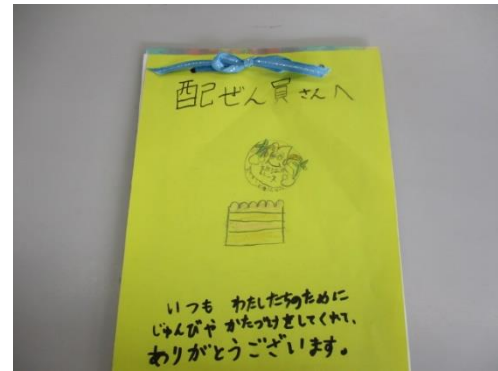 配ぜん員さんへ
いつも わたしたちのために
じゅんびや かたづけをしてくれて、
ありがとうございます。